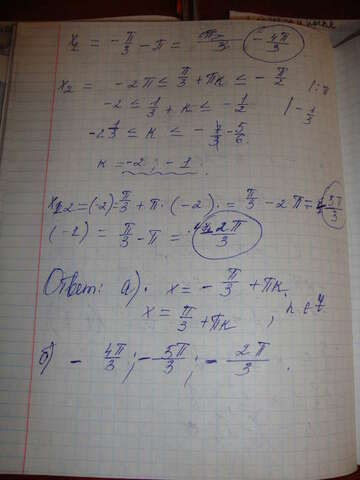 x₁ = -π/3 - π = -4π/3
x₂ = -2π ≤ π/3 + πk ≤ -π/2 |:π
-2 ≤ 1/3 + k ≤ -1/2 |-1/3
-2 1/3 ≤ k ≤ -5/6
k = -2; -1.
x₂ = (-2) = π/3 + π·(-2) = π/3 - 2π = -5π/3
(-1) = π/3 - π = -2π/3
Ответ: а). x = -π/3 + πk,
x = π/3 + πk, k ∈ Z
б) -4π/3; -5π/3; -2π/3.